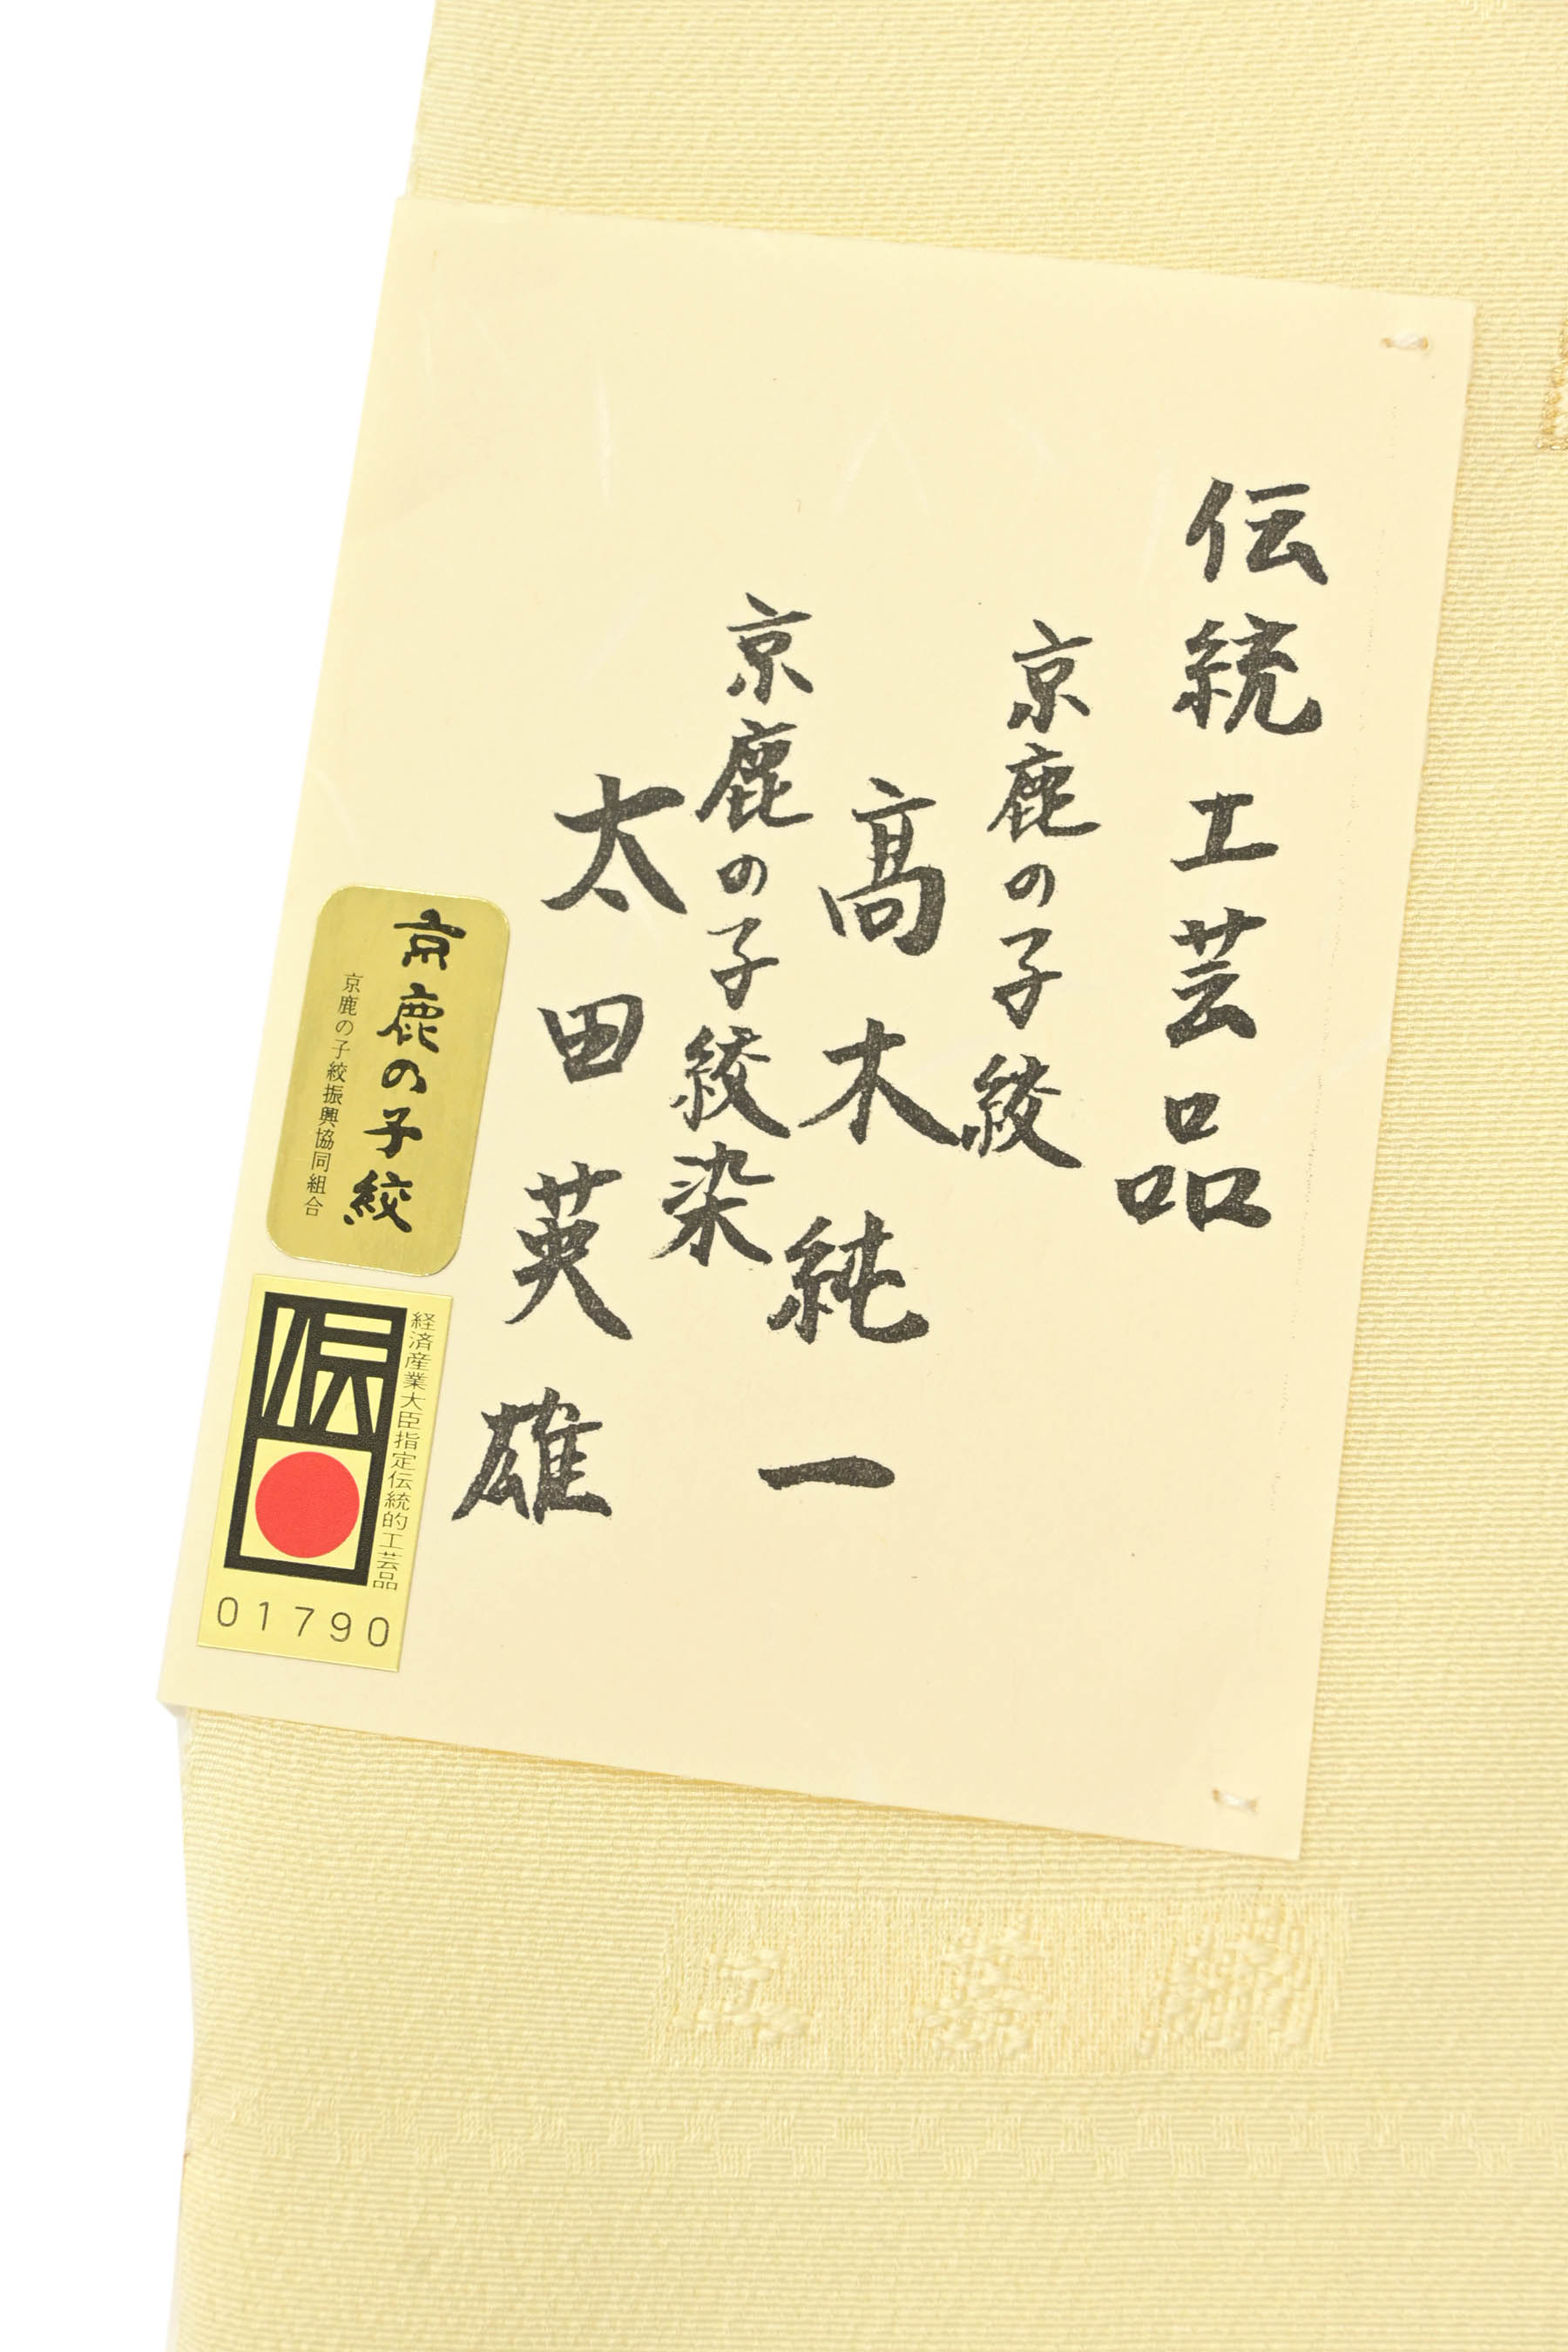 伝統工芸品
京鹿の子絞
髙木純一
京鹿の子絞染
太田英雄
京鹿の子絞
京鹿の子絞振興協同組合
経済産業大臣指定伝統的工芸品
伝
01790